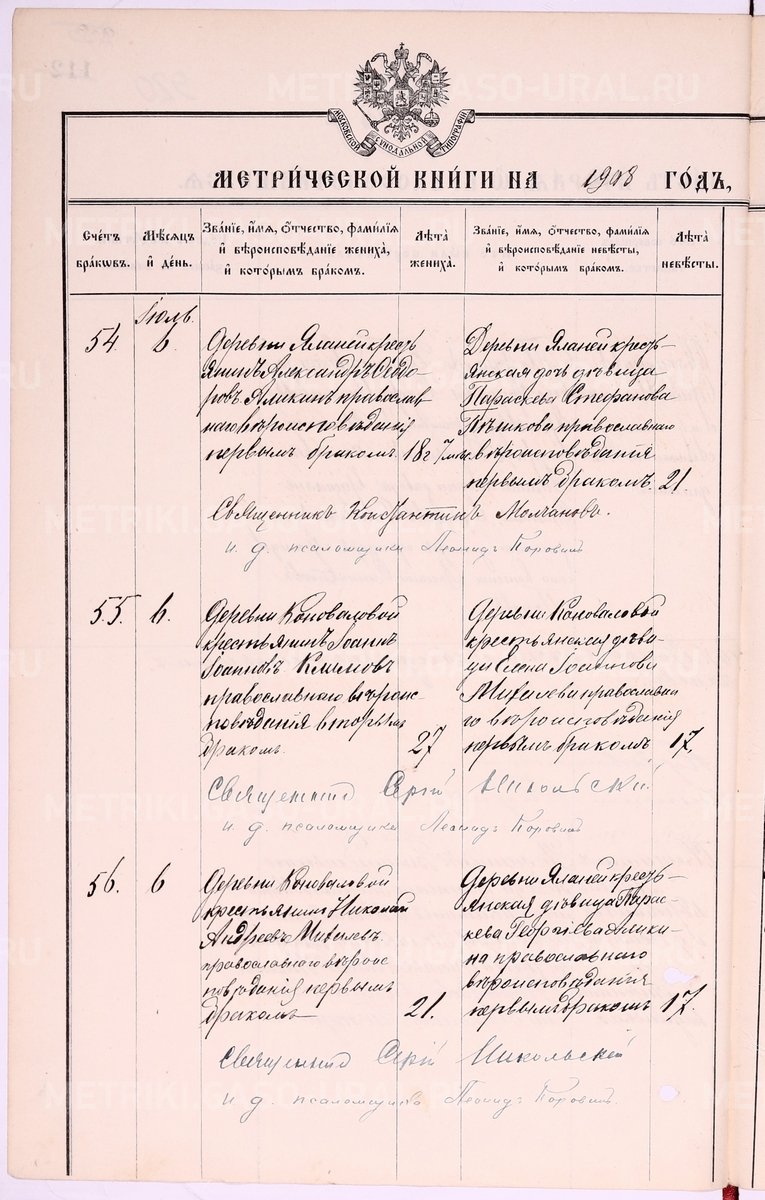 МОСКОВСКОЙ СѴНОДАЛЬНОЙ ТИПОГРАФІИ
МЕТРИ́ЧЕСКОЙ КНИ́ГИ НА 1908 ГО́ДЪ,
Сче́тъ бра́кѡвъ.
Мѣ́сяцъ и҆ де́нь.
Зва́нїе, и҆́мя, ѻ҆́тчество, фами́лїя и҆ вѣроисповѣ́данїе жениха̀, и҆ кото́рымъ бра́комъ.
Лѣ́та жениха̀.
Зва́нїе, и҆́мя, ѻ҆́тчество, фами́лїя и҆ вѣроисповѣ́данїе невѣ́сты, и҆ кото́рымъ бра́комъ.
Лѣ́та невѣ́сты.
Іюль.
54. 6.
Деревни Яланей кресть
янинъ Александръ Ѳедо-
ровъ Яликинъ православ
наго вѣроисповѣданія
первымъ бракомъ. 18 г 7 мѣс.
Деревни Яланей кресть-
янская дочь дѣвица
Параскева Стефанова
Пѣшкова православнаго
вѣроисповѣданія
первымъ бракомъ. 21.
Священникъ Константинъ Молчановъ.
и. д. псаломщика Леонидъ Коровинъ
55. 6.
Деревни Коноваловой
крестьянинъ Іоаннъ
Іоанновъ Климовъ
православнаго вѣроис-
повѣданія вторымъ
бракомъ. 27
Деревни Коноваловой
крестьянская дѣви-
ца Елена Іоаннова
Михалева православна
го вѣроисповѣданія
первымъ бракомъ 17.
Священникъ Сергій Никольскій
и. д. псаломщика Леонидъ Коровинъ
56. 6
Деревни Коноваловой
крестьянинъ Николай
Андреевъ Михалевъ
православнаго вѣроис
повѣданія первымъ
бракомъ 21.
Деревни Яланей кресть-
янская дѣвица Парас-
кева Георгіева Ялики-
на православнаго
вѣроисповѣданія
первымъ бракомъ 17.
Священникъ Сергій Никольскій
и. д. псаломщика Леонидъ Коровинъ.